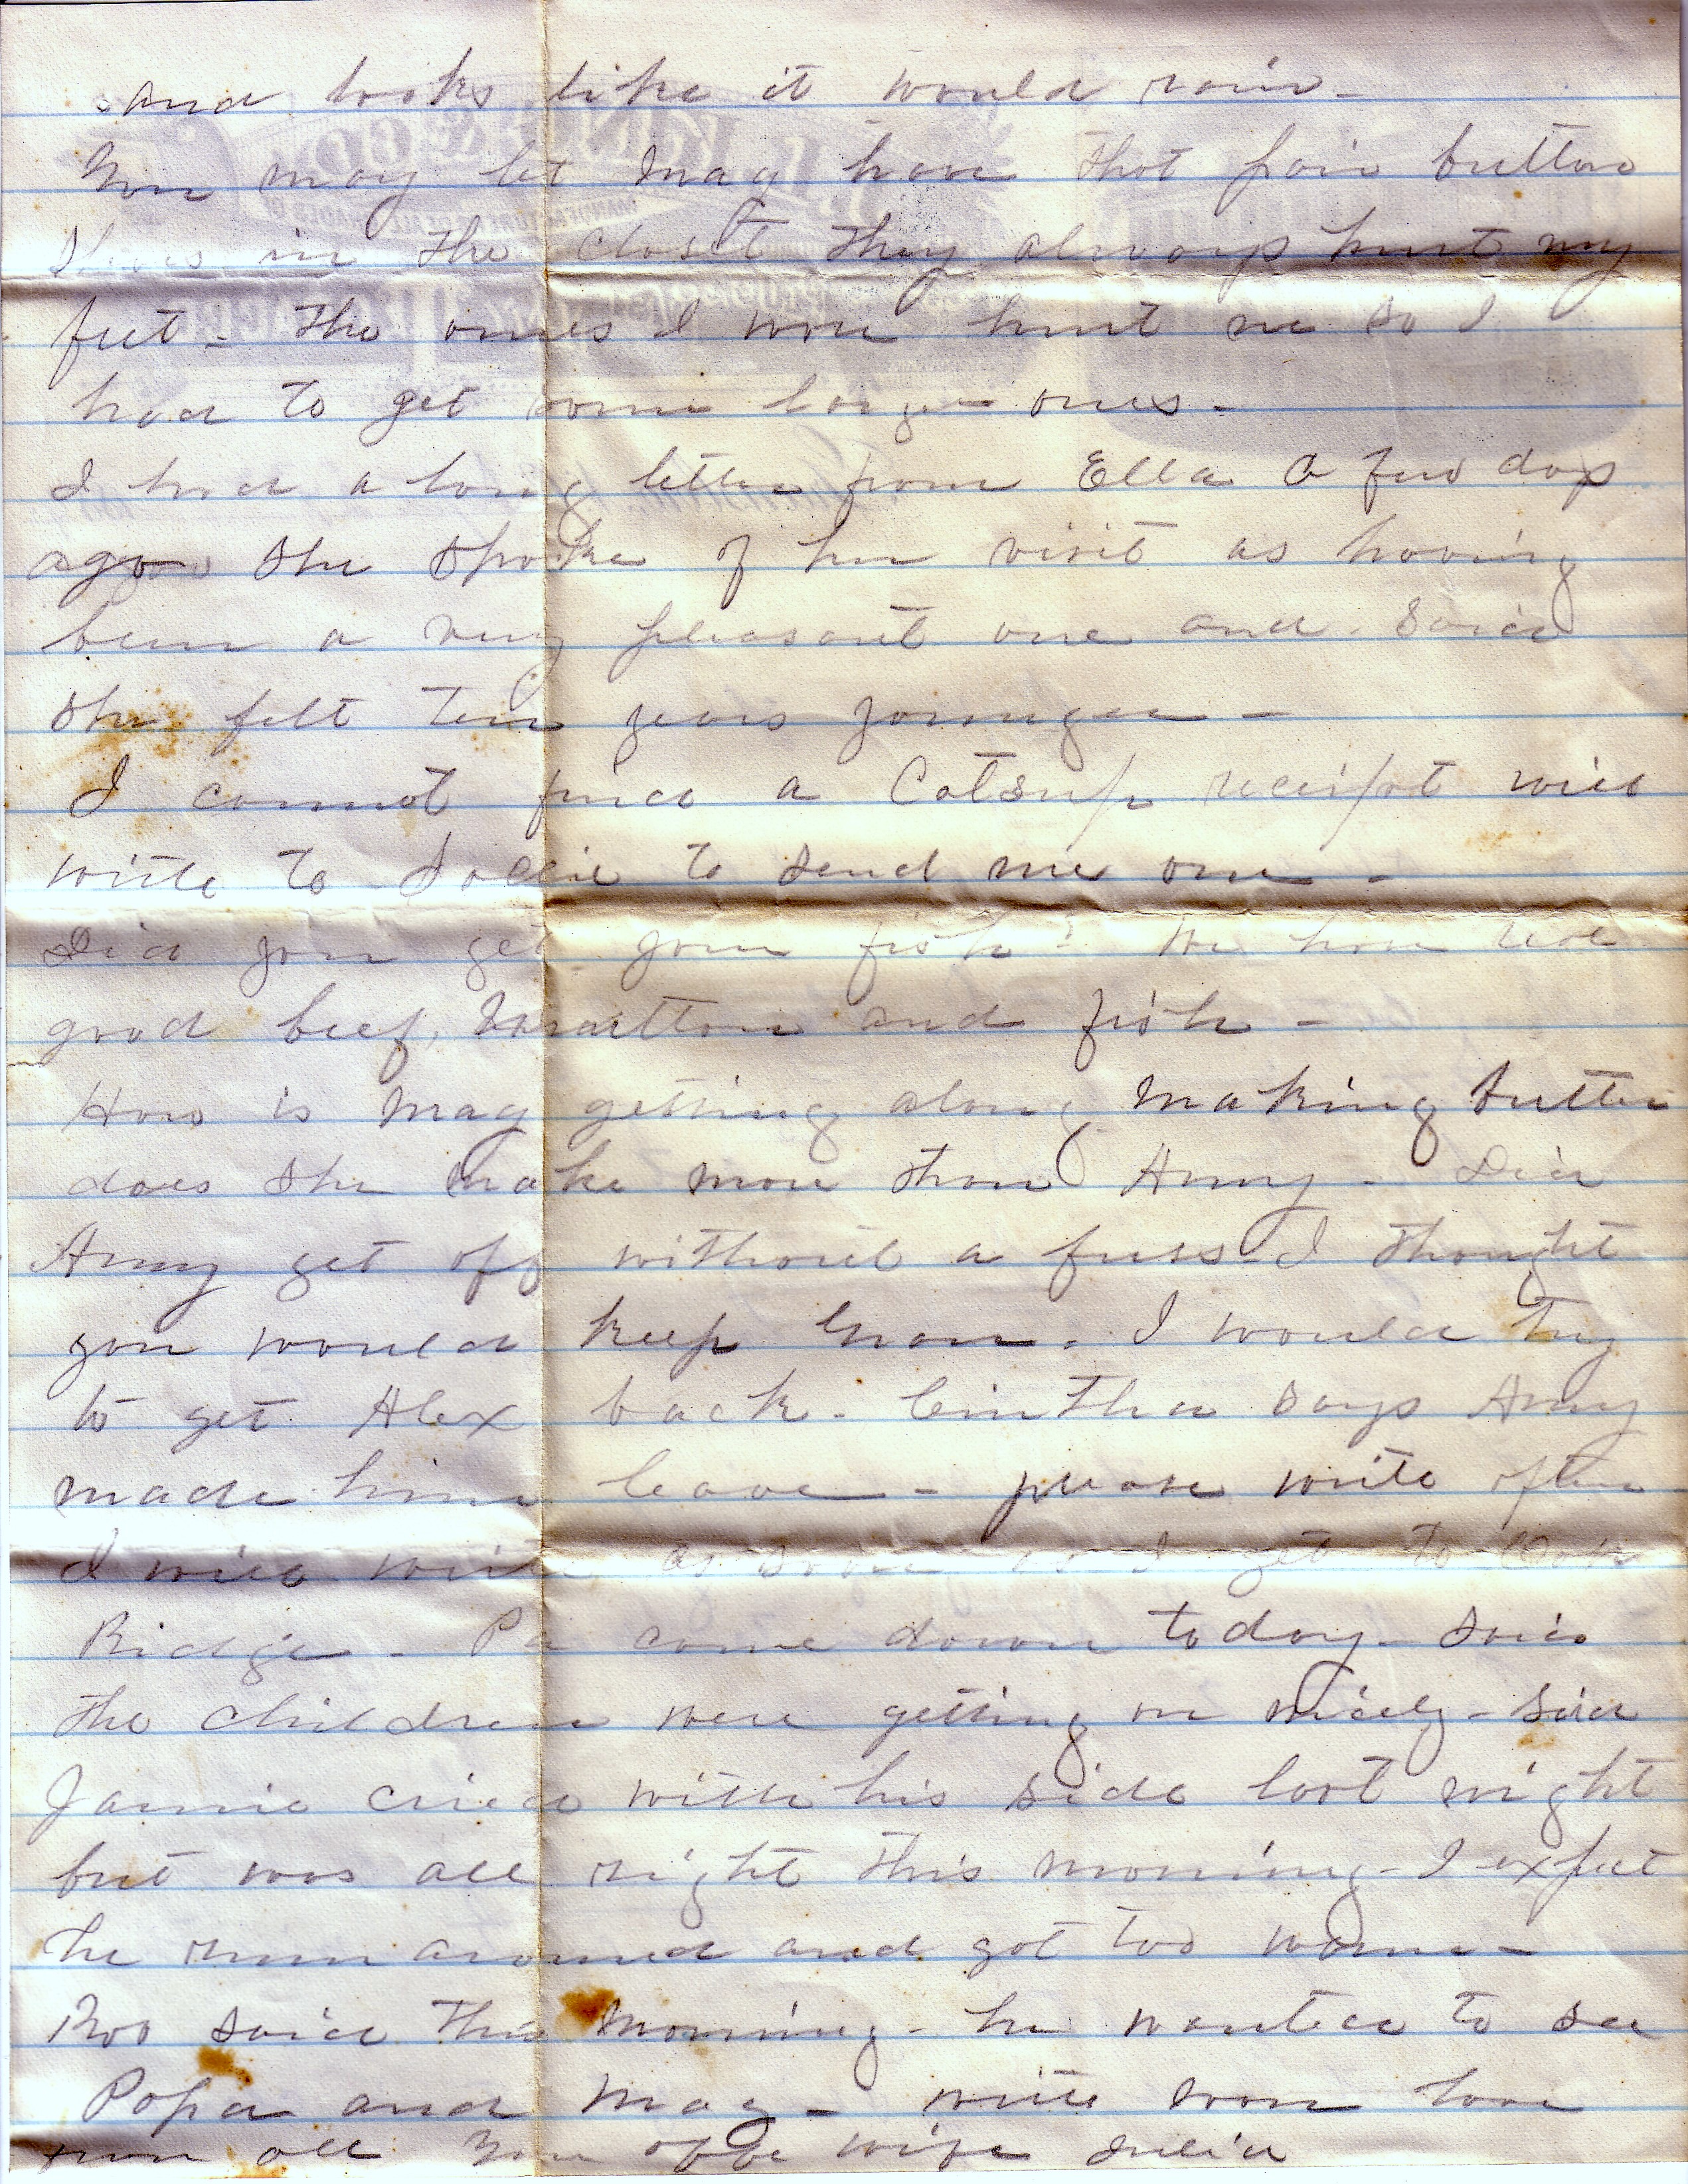 and looks like it would rain -
You may let Mag have that pair button
shoes in the closet they always hurt my
feet - the ones I wore hurt me so I
had to get some larger ones -
I had a long letter from Ella a few days
ago she spoke of her visit as having
been a very pleasant one and said
she felt ten years younger -
I cannot find a Catsup receipt will
write to Dollie to send me one -
Did you get your fish? We have real
good beef, mutton and fish -
How is Mag getting along making butter
does she make more than Amy - Did
Amy get off without a fuss - I thought
you would keep . I would try
to get Alex back - Cintha says Amy
made him leave - please write often -
I will write as soon as I get to Oak
Ridge - Pa came down today - said
the children were getting on nicely - said
Jamie cried with his side last night
but was all right this morning - I expect
he run around and got too warm -
Boo said this morning - he wanted to see
Papa and Mag - write soon love
from all Your affe wife Julia